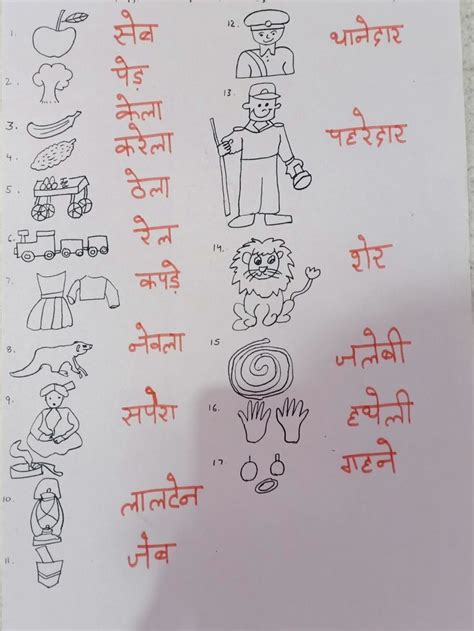 1. सेब
2. पेड़
3. केला
4. करेला
5. ठेला
6. रेल
7. कपड़े
8. नेवला
9. सपेरा
10. लालटेन
11. जेब
12. थानेदार
13. पहरेदार
14. शेर
15 जलेबी
16. हथेली
17. गहने